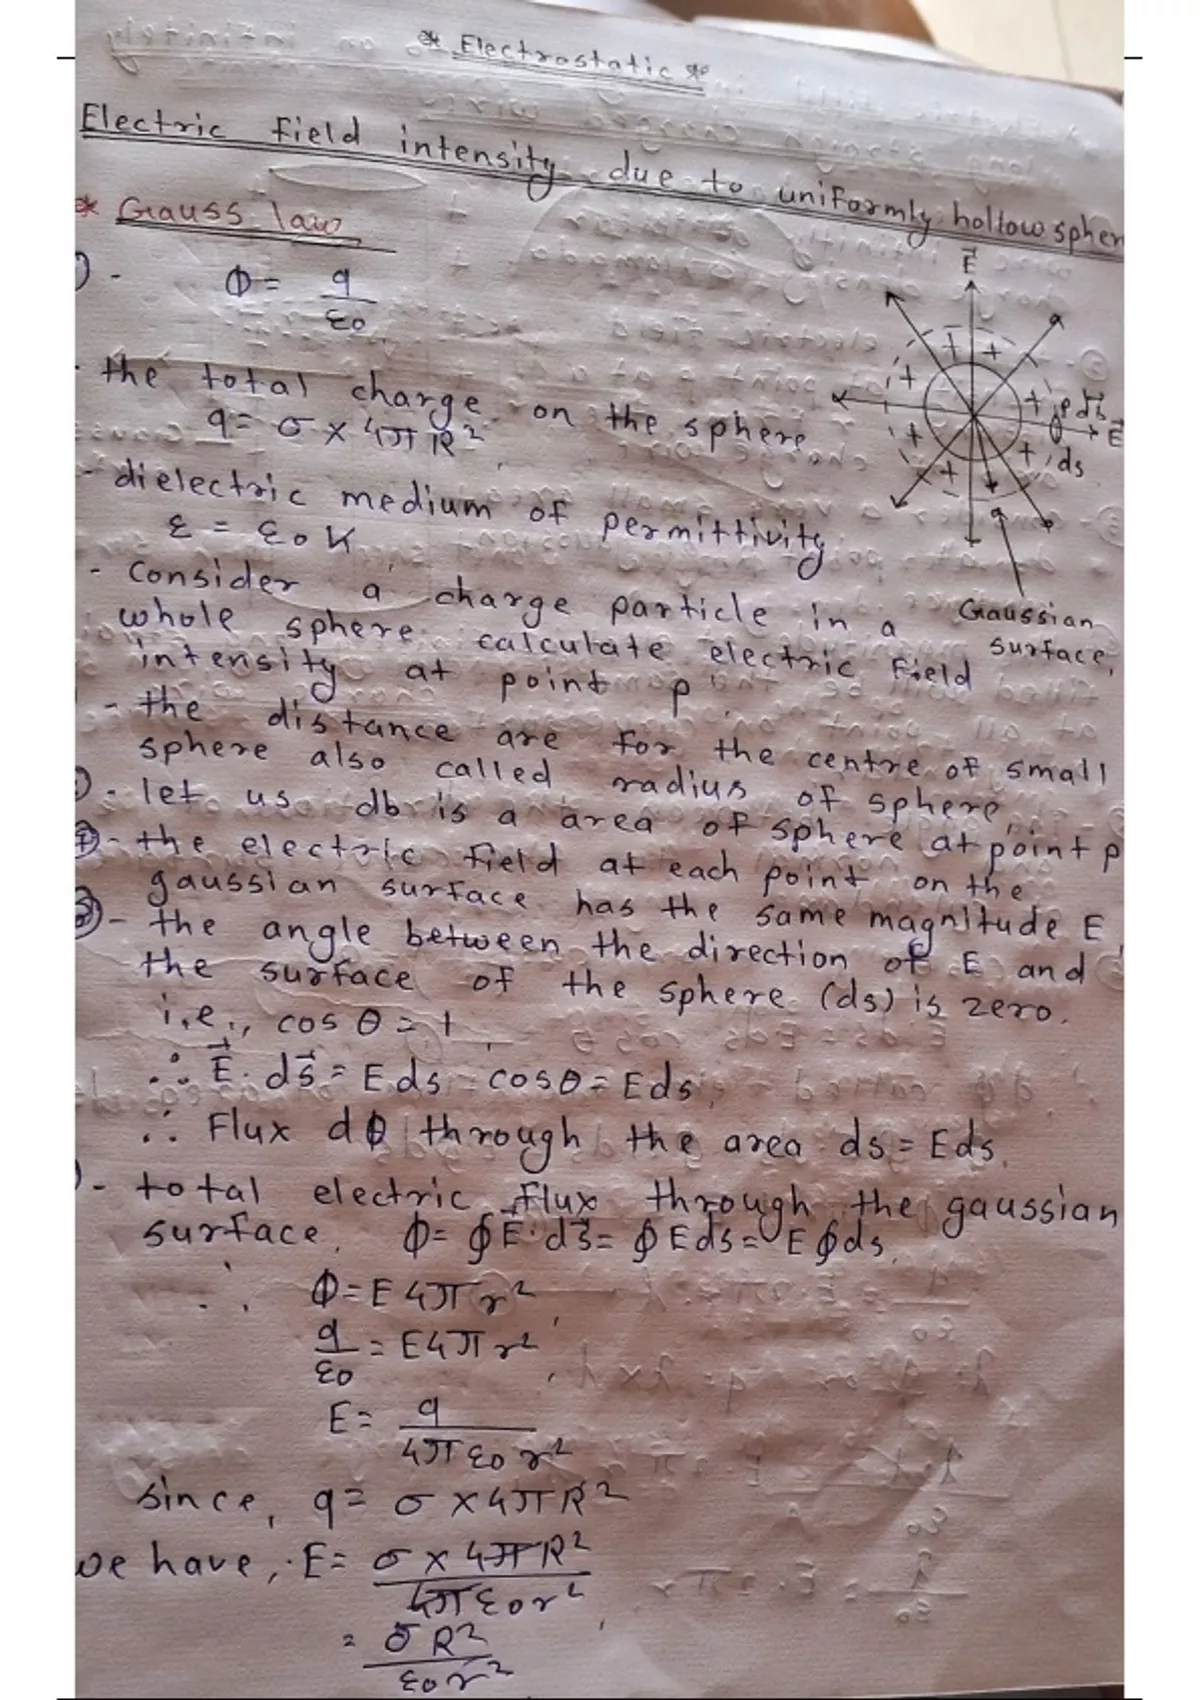 * Electrostatic *
Electric field intensity due to uniformly hollow spher
* Gauss law
E
- Φ = q/ε0
- the total charge on the sphere
q = σ × 4π R²
P ds
E
ds
- dielectric medium of permittivity
ε = ε0 K
- Consider a charge particle in a
whole sphere calculate electric field
intensity at point p.
Gaussian
surface,
- the distance are for the centre of small
sphere also called radius of sphere
- let us db is a area of sphere at point p
- the electric field at each point on the
gaussian surface has the same magnitude E
- the angle between the direction of E and
the surface of the sphere (ds) is zero.
i.e., cos θ = 1
∴ E⃗ · ds⃗ = E ds cos θ = E ds,
∴ Flux dΦ through the area ds = Eds.
- total electric flux through the gaussian
surface, Φ = ∮ E⃗ · ds⃗ = ∮ E ds = E ∮ ds,
∴ Φ = E 4π r²
q/ε0 = E 4π r²
E = q/4π ε0 r²
since, q = σ × 4π R²
we have, E = σ × 4π R²/4π ε0 r²
= σ R²/ε0 r²